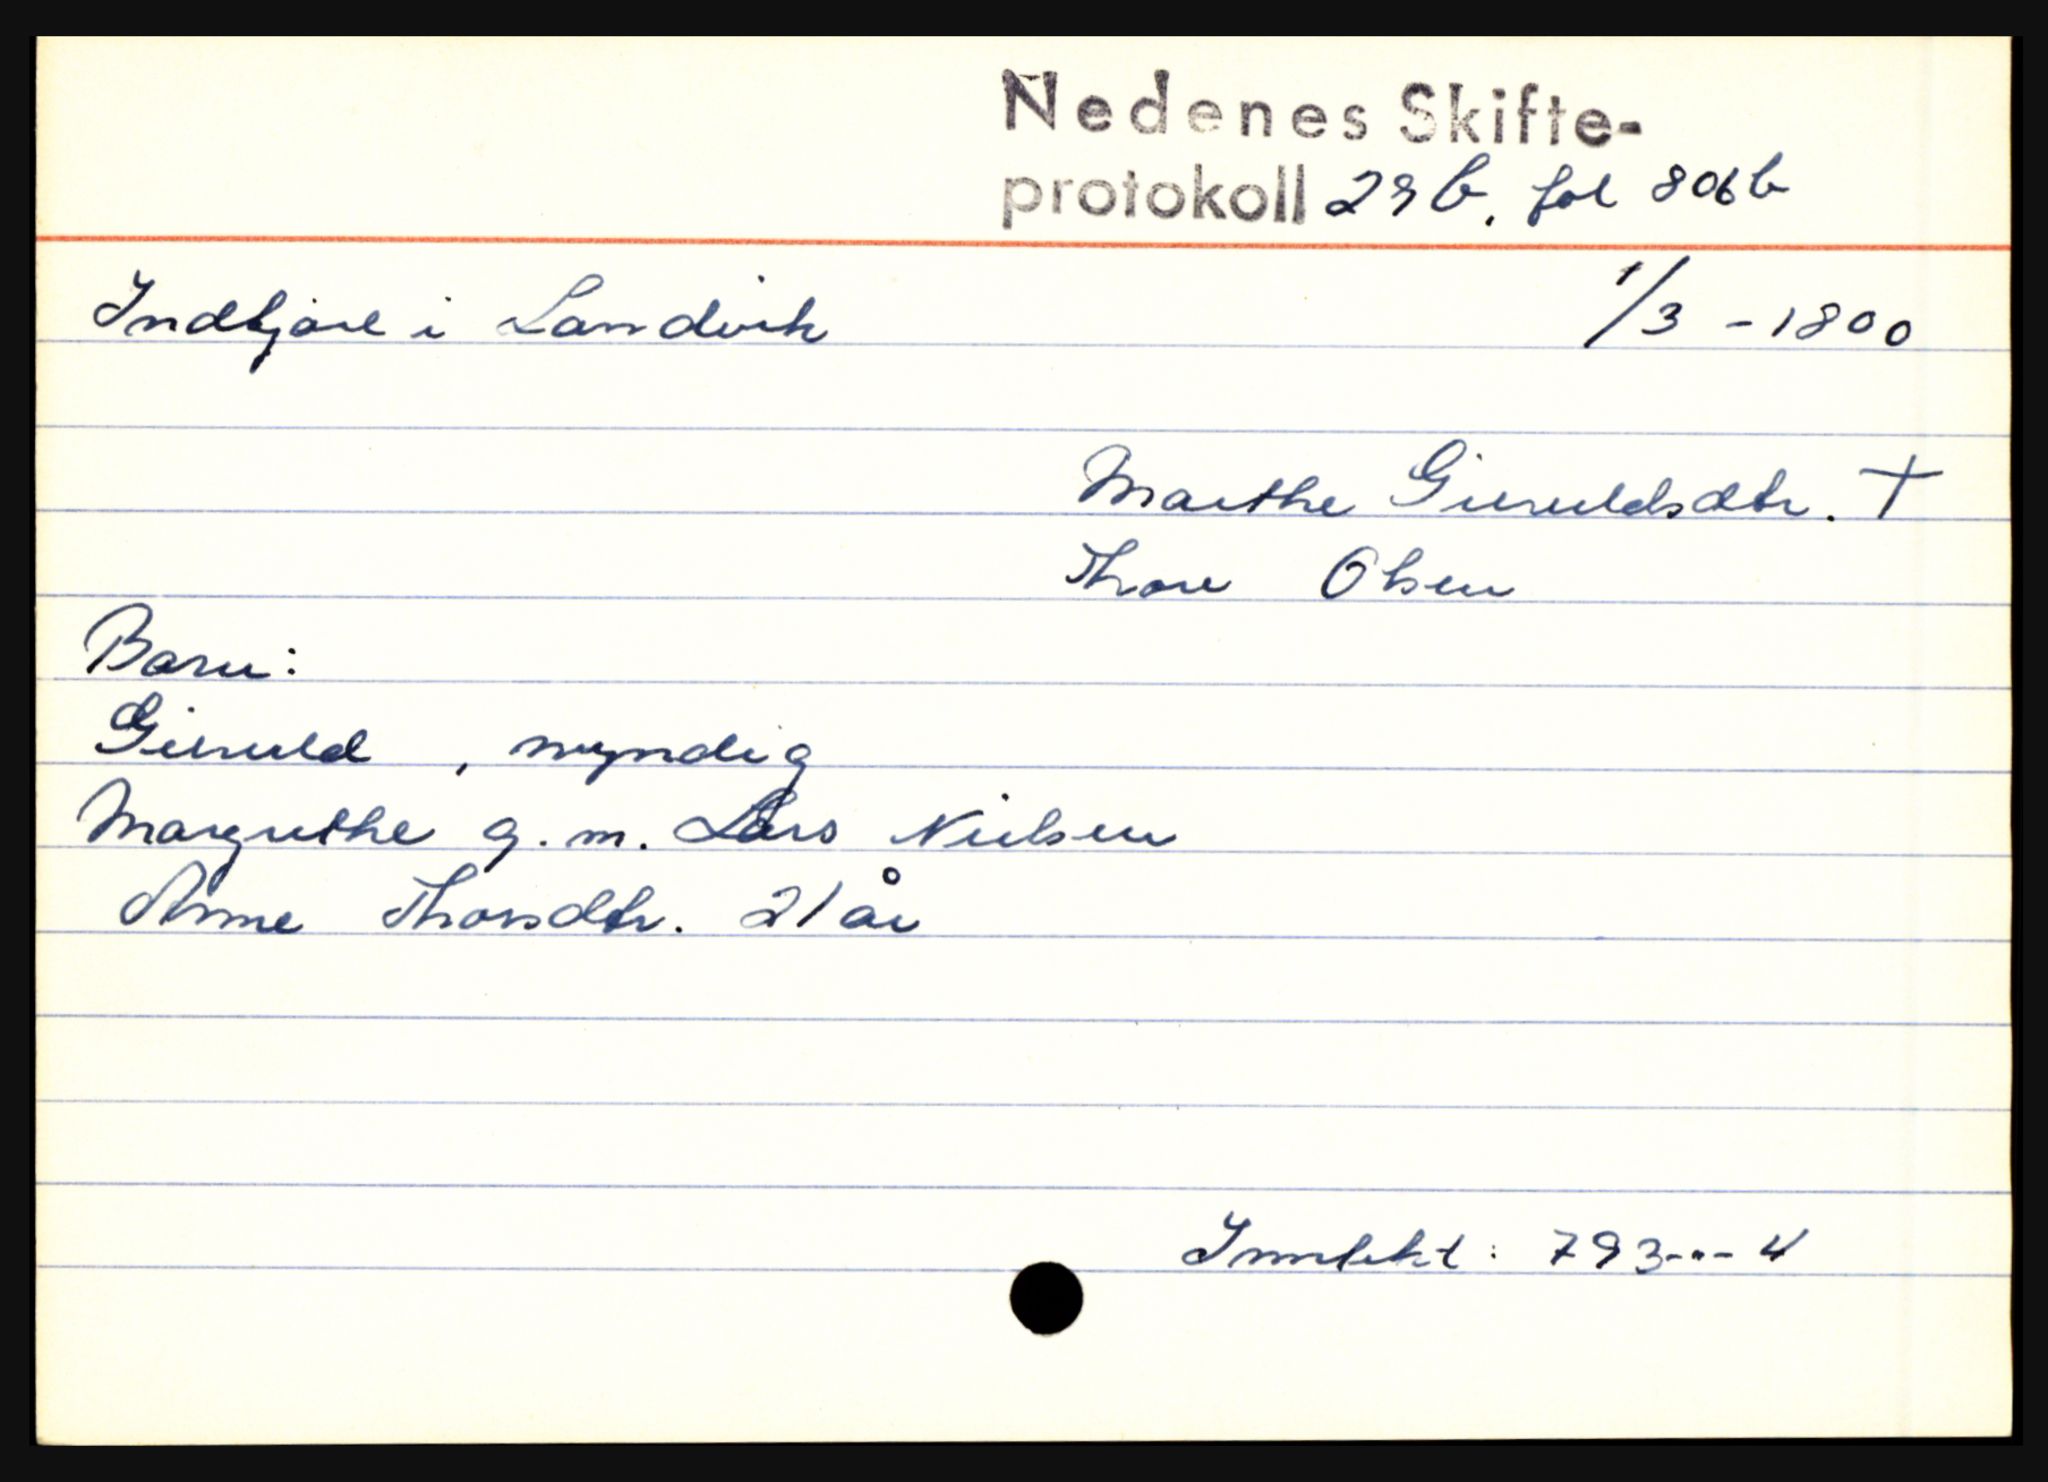 Nedenes Skifte-
protokoll 29b. fol 806b
Indkjær i Landvik 1/3 - 1800
Marthe Gieruldsdtr. †
Thore Olsen
Barn:
Gieruld , myndig
Margrethe g. m. Lars Nielsen
Anne Thorsdtr. 21 år
Inntekt: 793-"-4